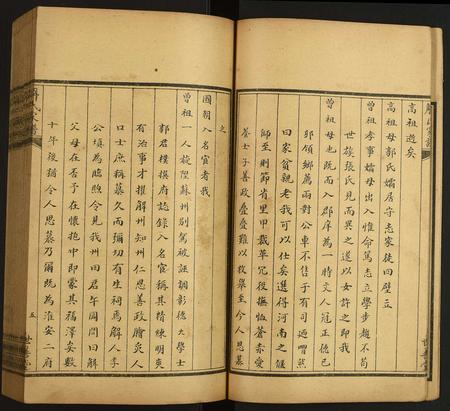 高祖逝矣
高祖母郭氏孀居守志家徒四壁立
曾祖孝事孀母出入惟命篤志立學步趨不苟
世族張氏見而異之遂以女許之即我
曾祖母也既而入郡庠為一時文人冠正德己
卯領鄉薦兩對公車不售于有司迺喟然
曰家貧親老我可以仕矣選得河南之偃
師至則節省里甲裁革冗役撫恤蒼赤愛
養士子善政疊疊難以枚舉至今人思慕
之
國朝入名宦者我
曾祖一人旋陞蘇州別駕被誣調彰德大學士
郭君樸撰府誌錄入名宦稱其精練明爽
有治事才擢解州知州仁恩善政膾炙人
口士庶稱慕久而彌切有生祠焉解人李
公填為臨煦令見我州田君午園問曰解
父母在否予在懷抱中即蒙其福澤安數
十年後猶令人思慕乃爾既為淮安二府
五